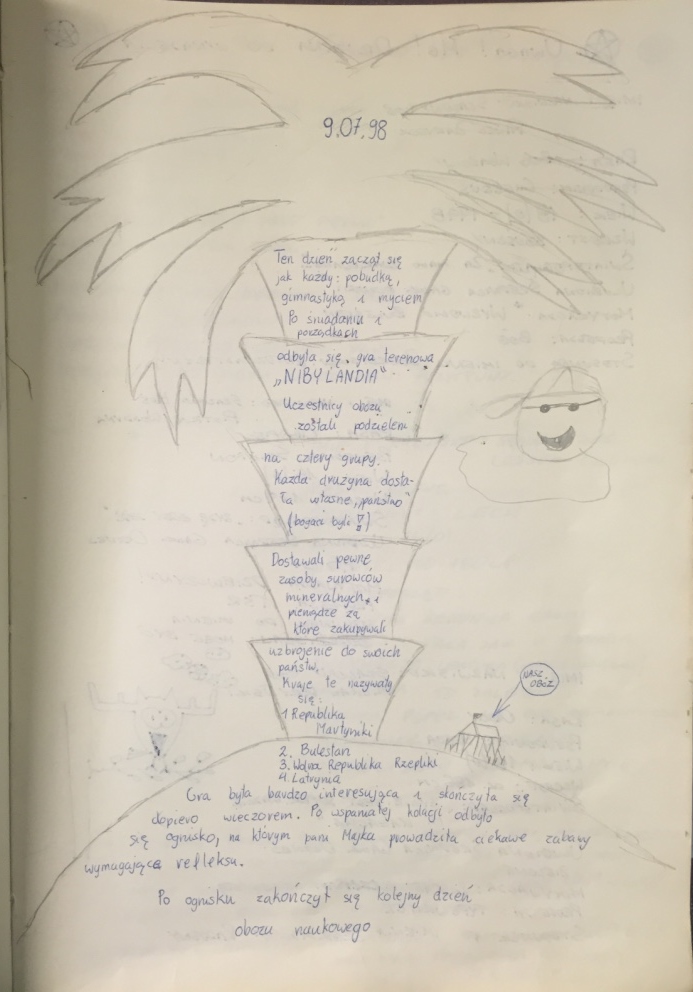 9.07.98
Ten dzień zaczął się
jak każdy: pobudką,
gimnastyką i myciem
Po śniadaniu i
porządkach
odbyła się gra terenowa
„NIBYLANDIA"
Uczestnicy obozu
zostali podzieleni
na cztery grupy.
Każda drużyna dosta-
ła własne „państwo"
(bogaci byli !)
Dostawali pewne
zasoby surowców
mineralnych i
pieniądze za
które zakupywali
uzbrojenie do swoich
państw.
Kraje te nazywały
się:
1 Republika
Martyniki
2. Bulestan
3. Wolna Republika Rzepliki
4. Latrynia
NASZ
OBÓZ
Gra była bardzo interesująca i skończyła się
dopiero wieczorem. Po wspaniałej kolacji odbyło
się ognisko, na którym pani Majka prowadziła ciekawe zabawy
wymagające refleksu.
Po ognisku zakończył się kolejny dzień
obozu naukowego